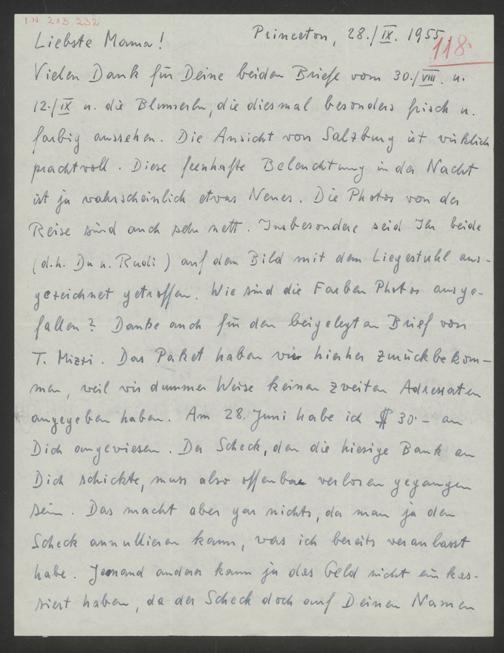 I.N 213.232
Princeton, 28./IX. 1955
118.
Liebste Mama!
Vielen Dank für Deine beiden Briefe vom 30./VIII. u.
12./IX u. die Blumen, die diesmal besonders frisch u.
farbig aussehen. Die Ansicht von Salzburg ist wirklich
prachtvoll. Diese feenhafte Beleuchtung in der Nacht
ist ja wahrscheinlich etwas Neues. Die Photos von der
Reise sind auch sehr nett. Insbesondere seid Ihr beide
(d.h. Du u. Rudi) auf dem Bild mit dem Liegestuhl aus-
gezeichnet getroffen. Wie sind die Farben Photos ausge-
fallen? Danke auch für den beigelegten Brief von
T. Mizzi. Das Paket haben wir hierher zurückbekom-
men, weil wir dummer Weise keinen zweiten Adressaten
angegeben haben. Am 28. Juni habe ich $ 30.- an
Dich angewiesen. Der Scheck, den die hiesige Bank an
Dich schickte, muss also offenbar verloren gegangen
sein. Das macht aber gar nichts, da man ja den
Scheck annullieren kann, was ich bereits veranlasst
habe. Jemand anderer kann ja das Geld nicht einkas-
siert haben, da der Scheck doch auf Deinen Namen